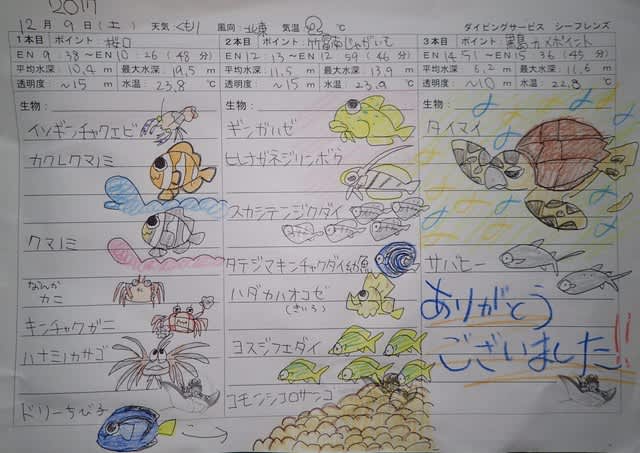 2017
12月9日(土) 天気 くもり 風向: 北東 気温: 20.2 ℃ ダイビングサービス シーフレンズ
1本目 ポイント: 桜口
EN 9:38～EN 10:26 (48分)
平均水深: 10.4 m 最大水深: 19.5 m
透明度 ～15 m 水温: 23.8 ℃
生物:
イソギンチャクエビ
カクレクマノミ
クマノミ
なんか
カニ
キンチャクガニ
ハナミノカサゴ
ドリーちび子
2本目 ポイント: 竹富南じゃがいも
EN 12:13～EN 12:59 (46分)
平均水深: 11.5 m 最大水深: 13.9 m
透明度 ～15 m 水温: 23.9 ℃
生物:
ギンガハゼ
ヒレナガネジリンボウ
スカシテンジクダイ
タテジマキンチャクダイ幼魚
ハダカハオコゼ
(きいろ)
ヨスジフエダイ
コモンシコロサンゴ
3本目 ポイント: 黒島カメポイント
EN 14:51～EN 15:36 (45分)
平均水深: 6.2 m 最大水深: 11.6 m
透明度 ～10 m 水温: 22.8 ℃
生物:
タイマイ
サバヒー
ありがとう
ございました!!